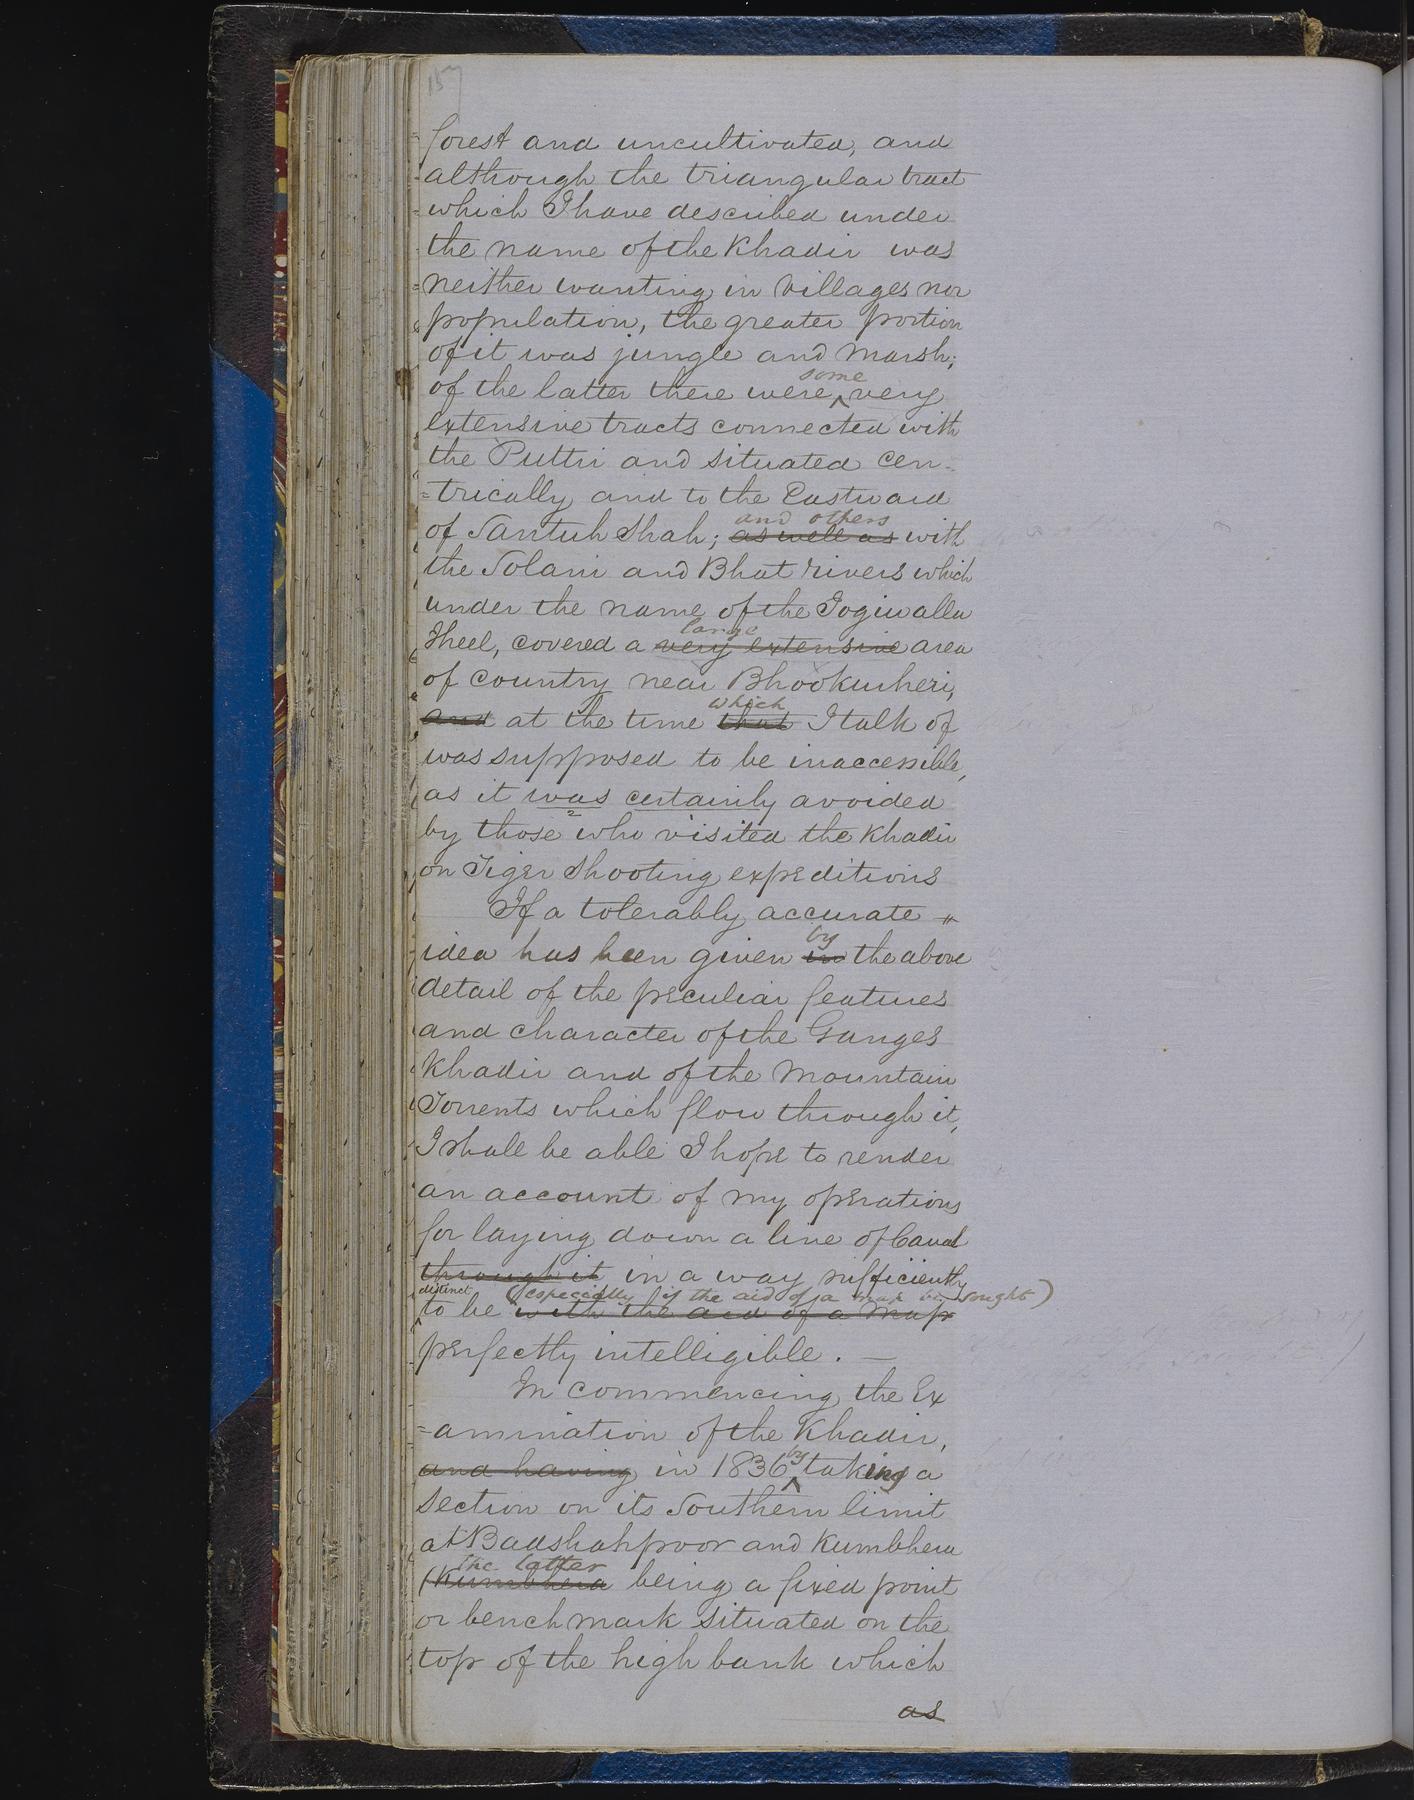 157
forest and uncultivated, and
although the triangular tract
which I have described under
the name of the Khadir was
neither wanting in Villages nor
population, the greater portion
of it was jungle and Marsh;
some
of the latter there were ^ very
extensive tracts connected with
the Puttri and situated cen-
=trically and to the Eastward
and others
of Santuh Shah; as well as with
the Solani and Bhut rivers which
under the name of the Jogiwalla
large
Jheel, covered a very extensive area
of country near Bhookurheri,
which
and at the time that I talk of
was supposed to be inaccessible,
as it was certainly avoided
by those who visited the Khadir
on Tiger Shooting expeditions
If a tolerably accurate
by
idea has been given in the above
detail of the peculiar features
and character of the Ganges
Khadir and of the Mountain
Torrents which flow through it,
I shall be able I hope to render
an account of my operations
for laying down a line of Canal
through it in a way sufficiently
distinct (especially if the aid of a map be sought)
to be with the aid of a Map
perfectly intelligible. —
In commencing the Ex
=amination of the Khadir,
by
and having in 1836 ^ taking a
Section on its Southern limit
at Badshahpoor and Kumbhera
the latter
(Kumbhera being a fixed point
or bench mark situated on the
top of the high bank which
as